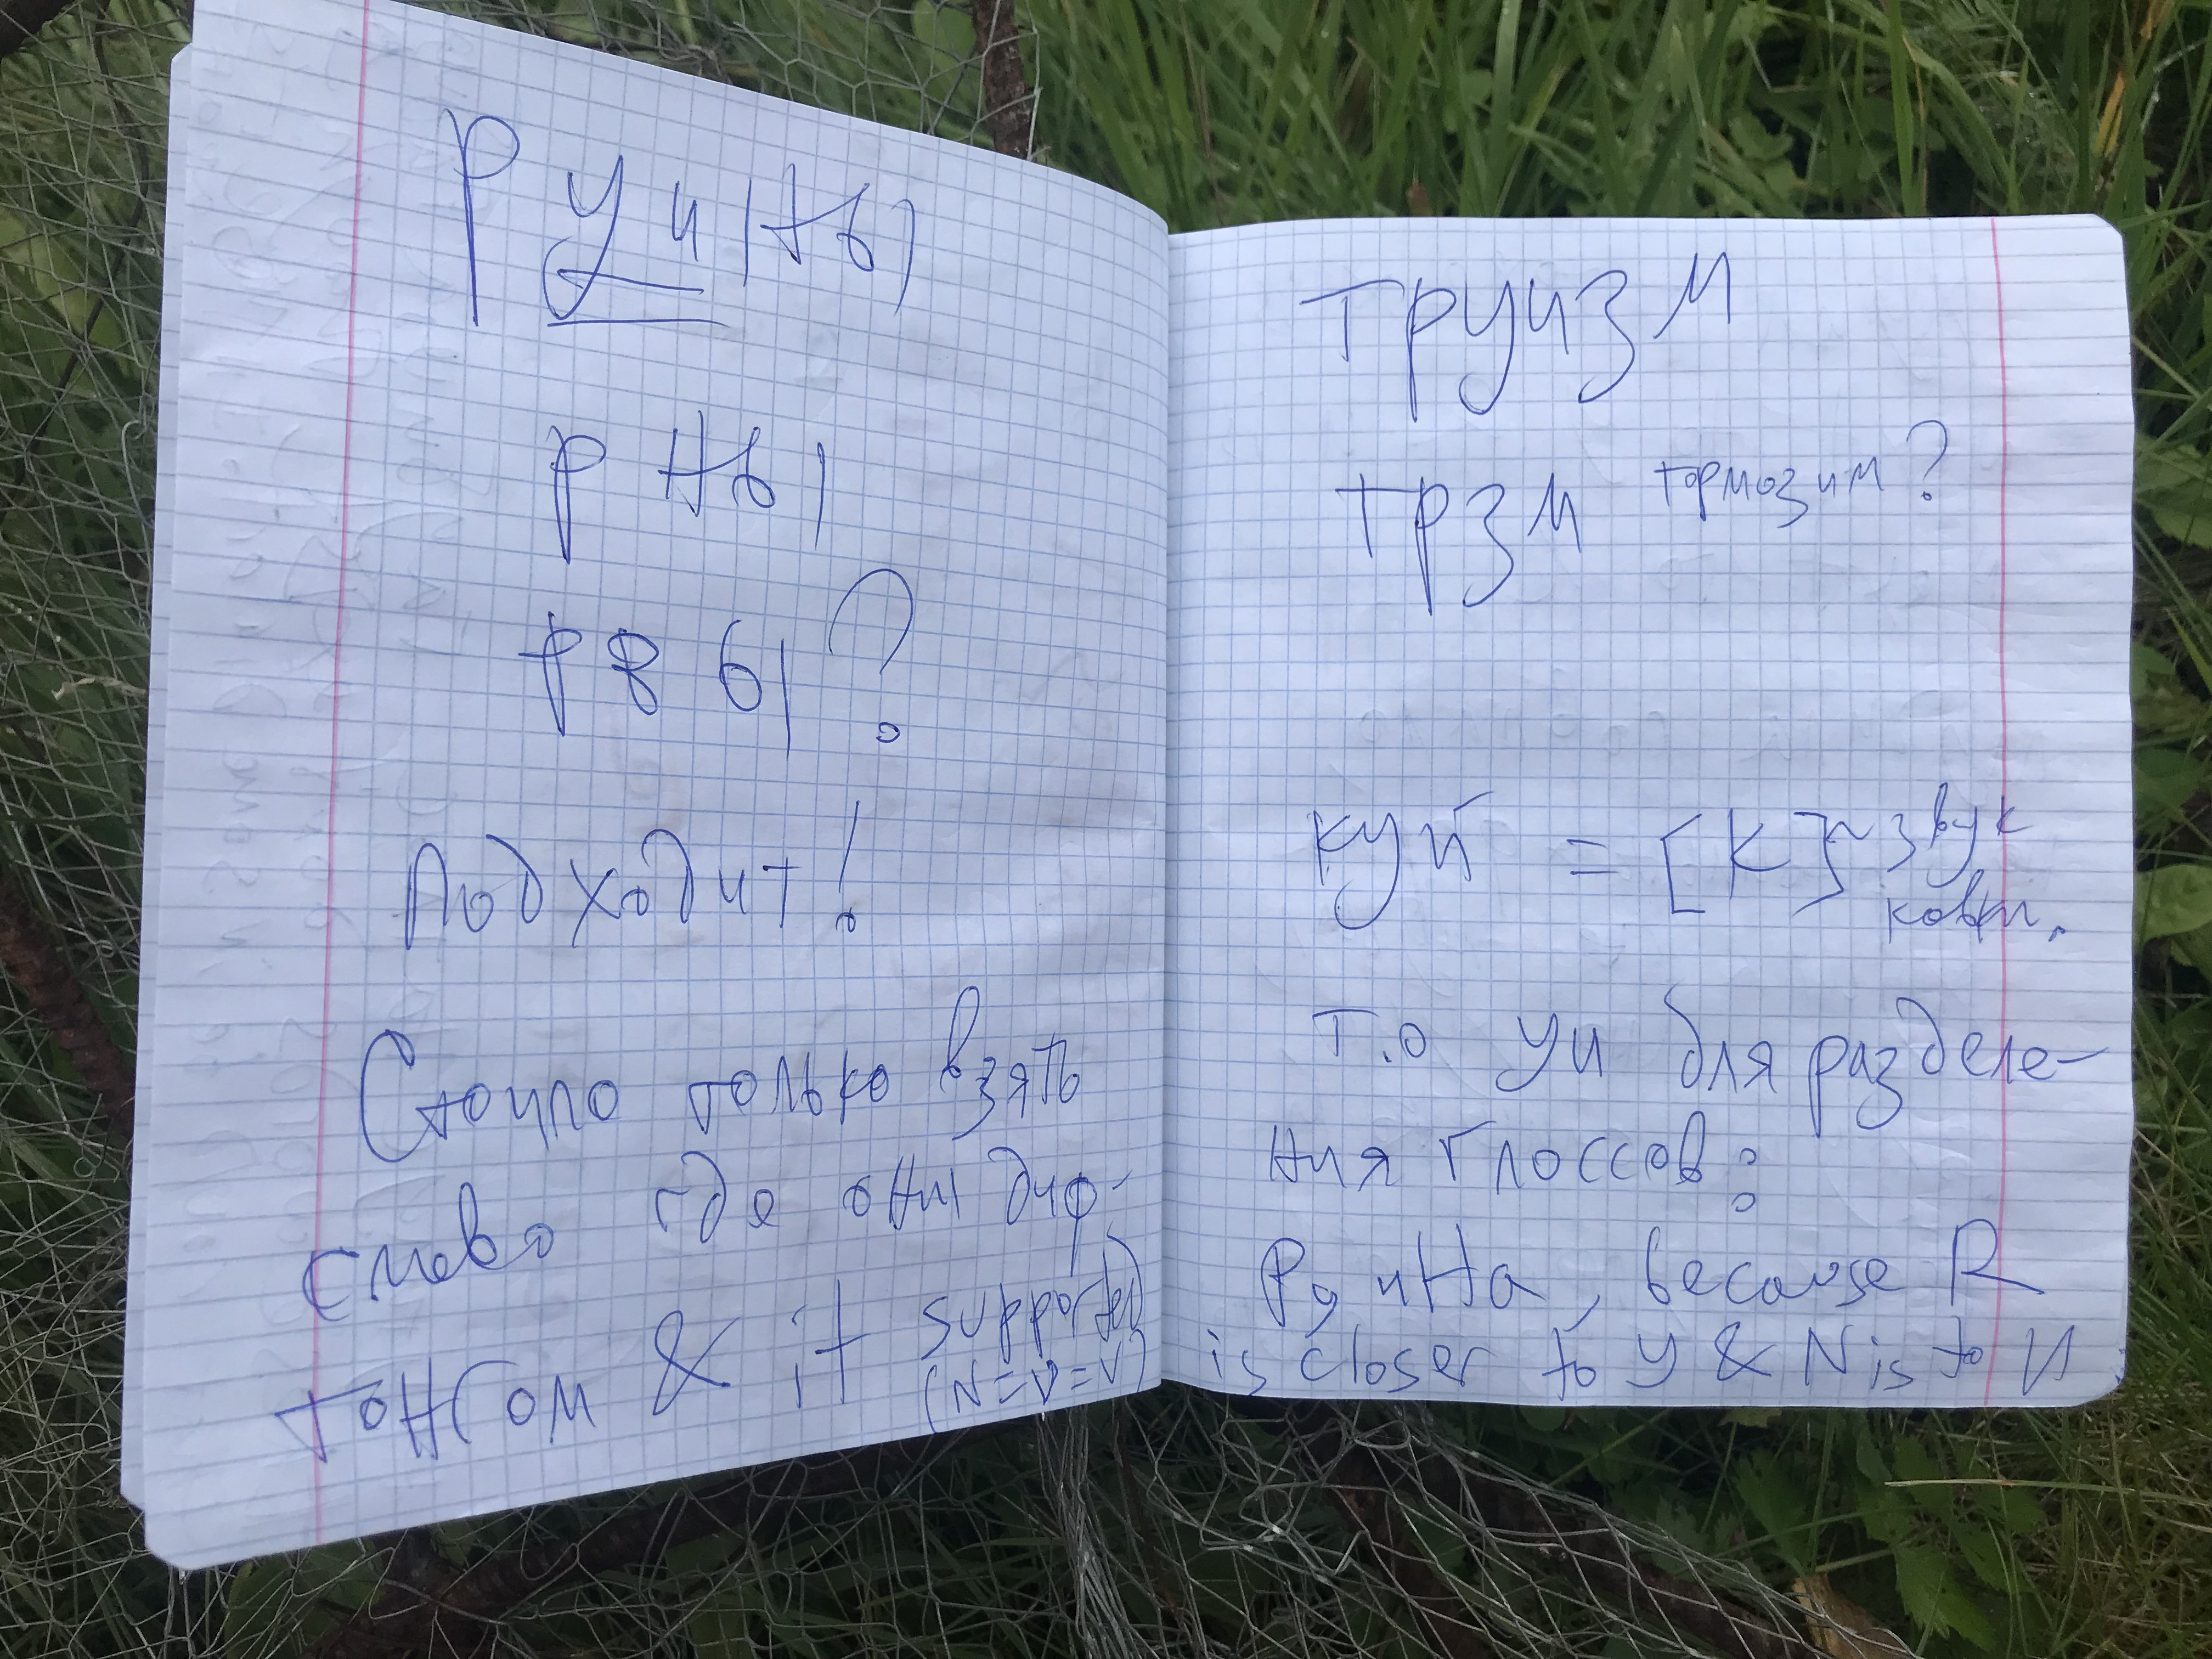 Руины
Рны
Рвы?
Подходит!
Стоило только взять
слово где они диф-
тонгом & it supported
(N=V=V)
труизм
трзм тормозим?
куй = [к]~звук
ковки.
Т.о уи для разделе-
ния глоссов:
РуиНа, because R
is closer to У & N is to И